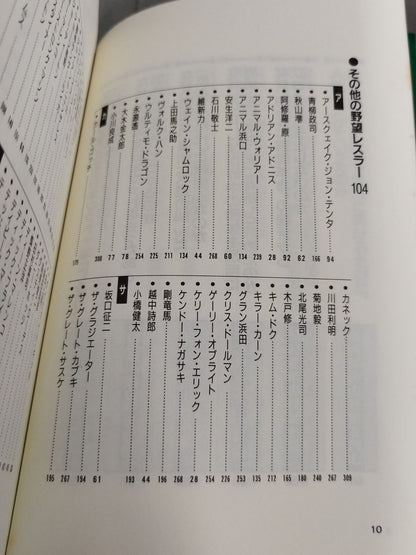 ●その他の野望レスラー 104
ア
●アースクェイク・ジョン・テンタ 94
●青柳政司 166
●秋山準 62
●阿修羅・原 92
●アドリアン・アドニス 28
●アニマル・ウォリアー 239
●アニマル浜口 134
●安生洋二 60
●石川敬士 268
●維新力 44
●ウェイン・シャムロック 134
●上田馬之助 211
●ヴォルク・ハン 225
●ウルティモ・ドラゴン 254
●永源遙 78
●大木金太郎 77
●小川良成 308
●カネック 309
●川田利明 267
●菊地毅 240
●北尾光司 180
●木戸修 165
●キム・ドク 212
●キラー・カーン 135
●グラン浜田 253
●クリス・ドールマン 226
●ゲーリー・オブライト 254
●ケリー・フォン・エリック 28
●ケンドー・ナガサキ 268
●剛竜馬 196
●越中詩郎 44
●小橋健太 193
サ
●坂口征二 61
●ザ・グラジエーター 194
●ザ・グレート・カブキ 267
●ザ・グレート・サスケ 195
10